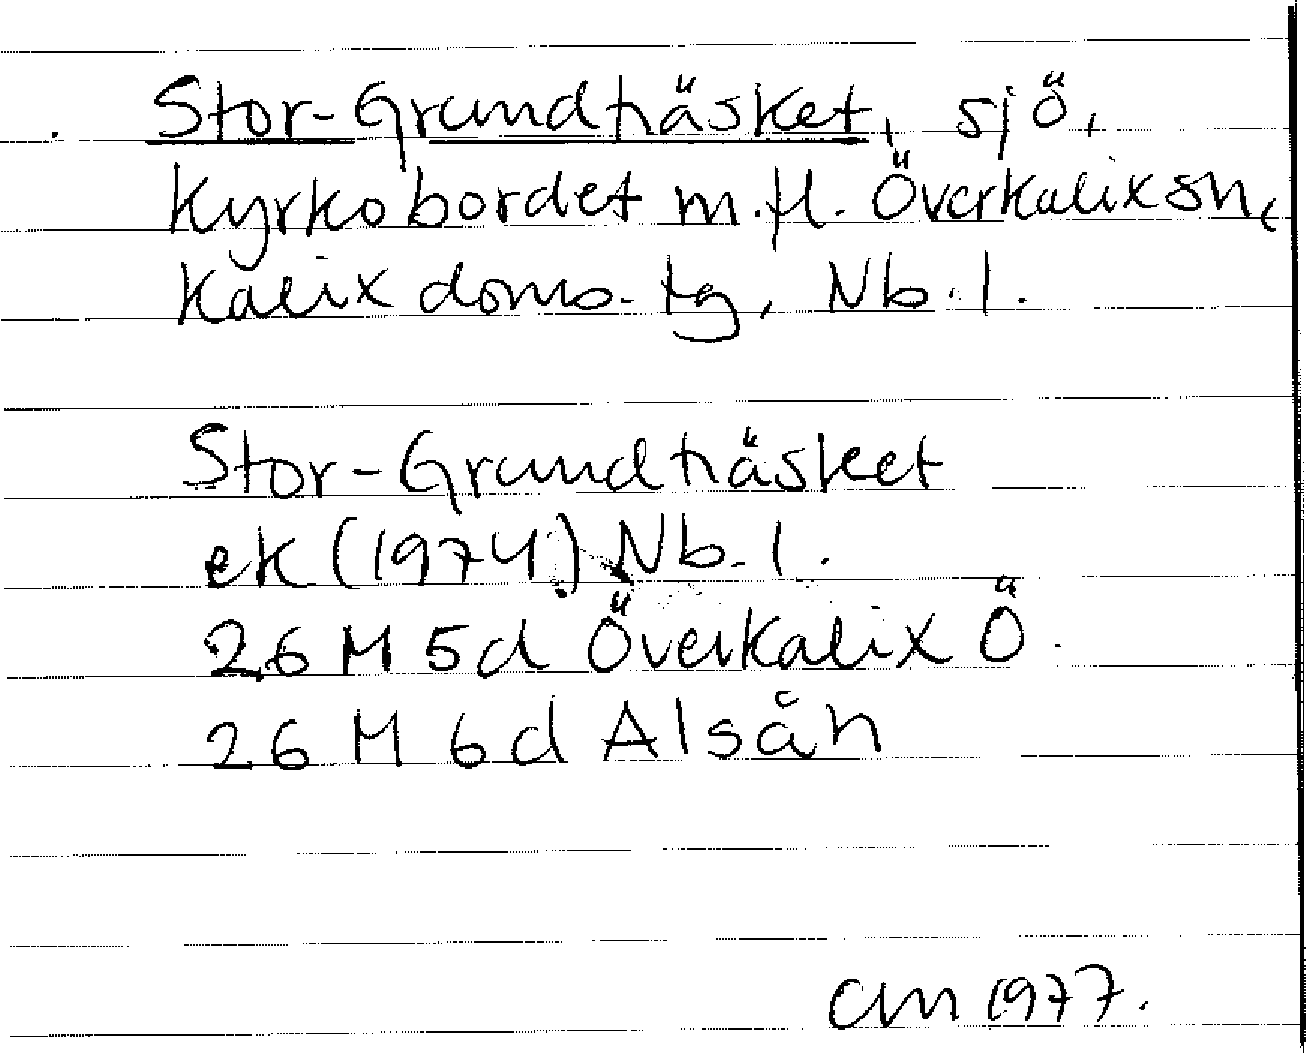 Stor-Grundträsket, sjö,
Kyrkobordet m.fl. Överkalix sn,
Kalix doms. tg, Nb. l.
Stor-Grundträsket
ek (1974) Nb. l.
26 M 5d Överkalix Ö.
26 M 6d Alsån
CM 1977.